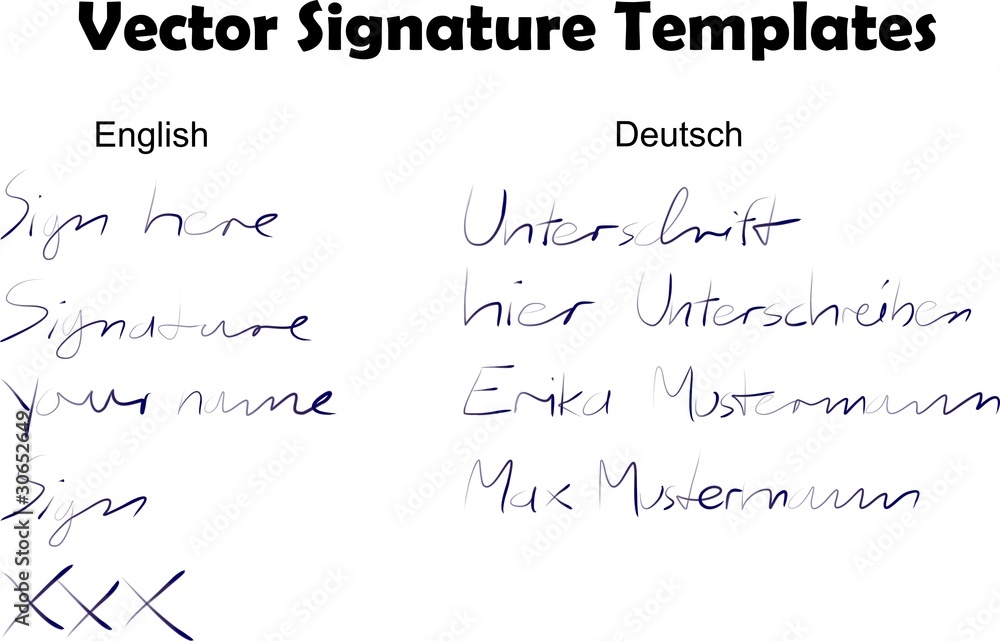 Vector Signature Templates
English
Sign here
Signature
Your name
Sign
XXX
Deutsch
Unterschrift
hier Unterschreiben
Erika Mustermann
Max Mustermann
Adobe Stock | #30652649